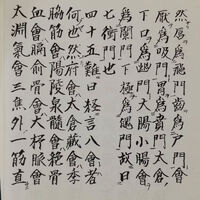 然唇爲飛門齒爲戶門會
厭爲吸門胃爲賁門大倉
下口爲幽門大腸小腸會
爲闌門下極爲魄門故曰
七衝門也
四十五難曰經言八會者
何也然府會大倉藏會季
脇筋會陽陵泉髓會絕骨
血會鬲俞骨會大杼脈會
大淵氣會三焦外一筋直